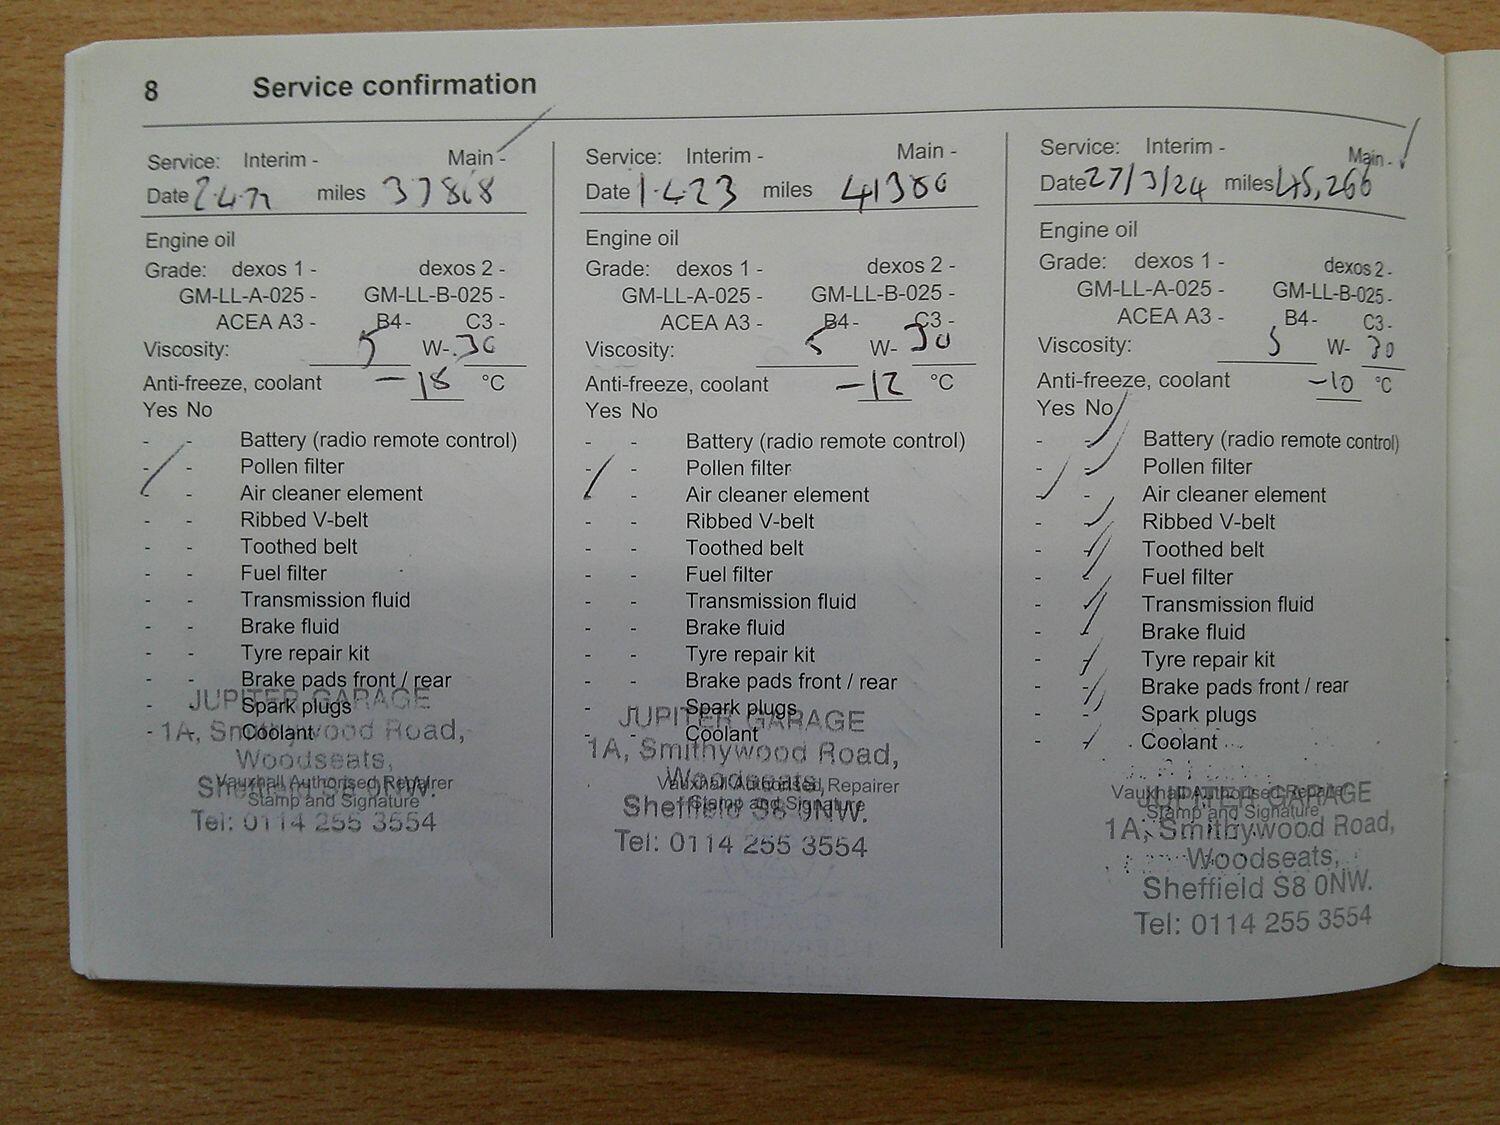 8 Service confirmation
Service: Interim - Main -
Date 2.4.22 miles 37868
Engine oil
Grade: dexos 1 - dexos 2 -
GM-LL-A-025 - GM-LL-B-025 -
ACEA A3 - B4- C3 -
Viscosity: 5 W- 30
Anti-freeze, coolant -18 °C
Yes No
- - Battery (radio remote control)
- - Pollen filter
- - Air cleaner element
- - Ribbed V-belt
- - Toothed belt
- - Fuel filter
- - Transmission fluid
- - Brake fluid
- - Tyre repair kit
- - Brake pads front / rear
- - Spark plugs
- - Coolant
Vauxhall Authorised Repairer
Stamp and Signature
JUPITER GARAGE
1A, Smithywood Road,
Woodseats,
Sheffield S8 0NW.
Tel: 0114 255 3554
Service: Interim - Main -
Date 1.4.23 miles
Engine oil
Grade: dexos 1 - dexos 2 -
GM-LL-A-025 - GM-LL-B-025 -
ACEA A3 - B4- C3 -
Viscosity: 5 W- 30
Anti-freeze, coolant -12 °C
Yes No
- - Battery (radio remote control)
- - Pollen filter
- - Air cleaner element
- - Ribbed V-belt
- - Toothed belt
- - Fuel filter
- - Transmission fluid
- - Brake fluid
- - Tyre repair kit
- - Brake pads front / rear
- - Spark plugs
- - Coolant
Vauxhall Authorised Repairer
Stamp and Signature
JUPITER GARAGE
1A, Smithywood Road,
Woodseats,
Sheffield S8 0NW.
Tel: 0114 255 3554
Service: Interim - Main -
Date 27/3/24 miles 45,266
Engine oil
Grade: dexos 1 - dexos 2 -
GM-LL-A-025 - GM-LL-B-025 -
ACEA A3 - B4- C3 -
Viscosity: 5 W- 30
Anti-freeze, coolant -10 °C
Yes No
- - Battery (radio remote control)
- - Pollen filter
- - Air cleaner element
- - Ribbed V-belt
- - Toothed belt
- - Fuel filter
- - Transmission fluid
- - Brake fluid
- - Tyre repair kit
- - Brake pads front / rear
- - Spark plugs
- - Coolant
Vauxhall Authorised Repairer
Stamp and Signature
JUPITER GARAGE
1A, Smithywood Road,
Woodseats,
Sheffield S8 0NW.
Tel: 0114 255 3554